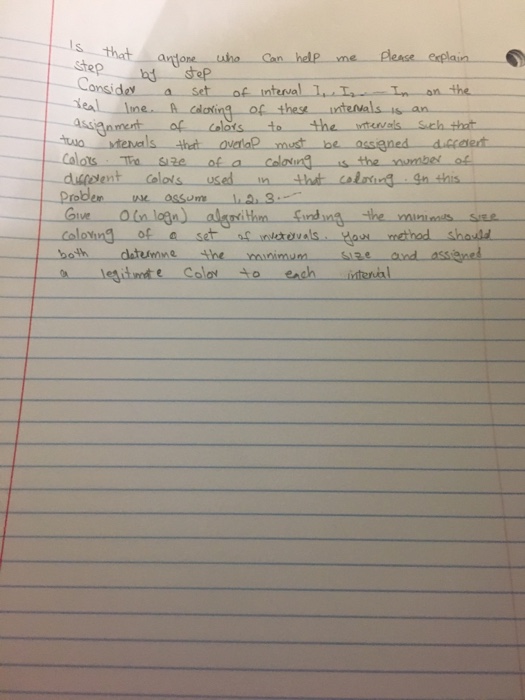 Is that anyone who can help me Please explain
step by step
Consider a set of interval I1, I2 --- In on the
real line. A coloring of these intervals is an
assignment of colors to the intervals such that
two intervals that overlap must be assigned different
Colors. The size of a coloring is the number of
different colors used in that coloring. In this
Problem we assume 1, 2, 3 ---
Give O(n logn) algorithm finding the minimum size
coloring of a set of intervals. Your method should
both determine the minimum size and assigned
a legitimate Color to each interval